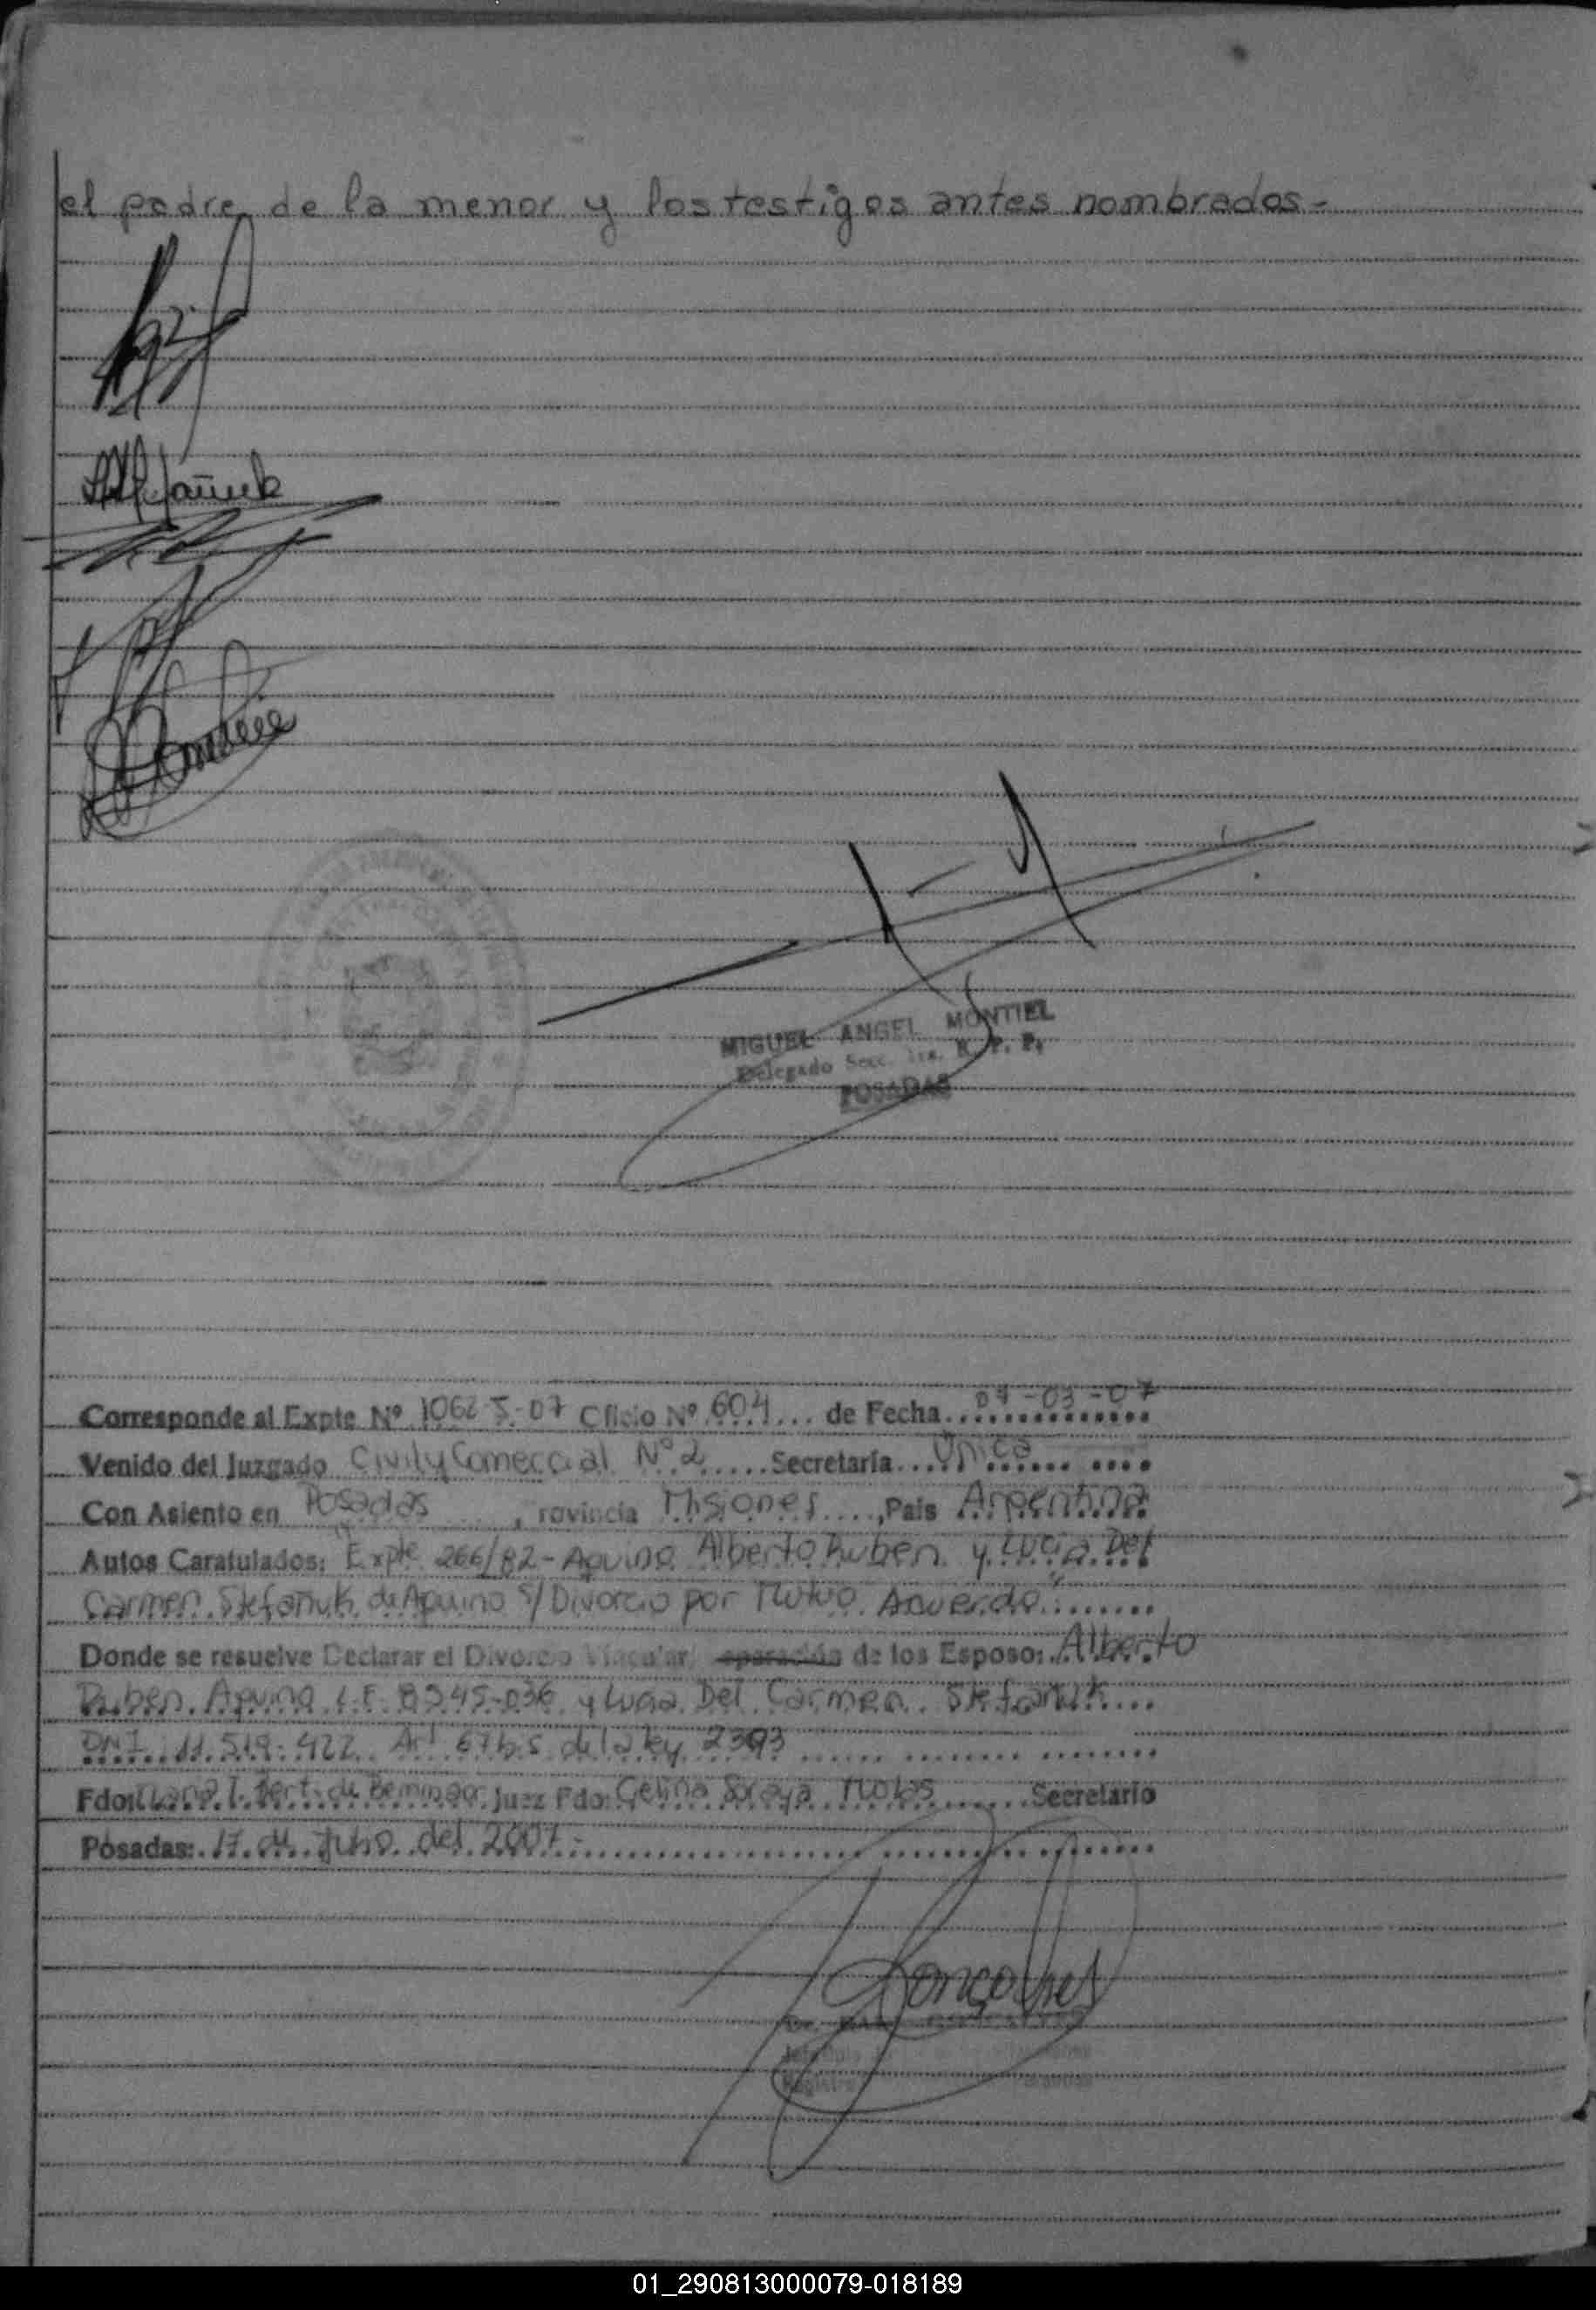 el padre de la menor y los testigos antes nombrados.-
MIGUEL ANGEL MONTIEL
Delegado Secc. 1ra. R. P. P.
POSADAS
Corresponde al Expte Nº 1062-S-07 Oficio Nº 604 ... de Fecha 07-03-07
Venido del Juzgado Civil y Comercial Nº 2 ..... Secretaría ..... Única
Con Asiento en Posadas, rovincia Misiones ...., Pais Argentina
Autos Caratulados: "Expte 266/82 - Aquino Alberto Ruben y Lucia Del
Carmen Stefañuk de Aquino S/ Divorcio por Mutuo Acuerdo"
Donde se resuelve Declarar el Divorcio Vincular, de los Esposo: Alberto
Ruben Aquino L.E. 8.545.036 y Lucia Del Carmen Stefañuk
DNI 11.519.422 Art 67 bis de la ley 2393
Fdo: de Juez Fdo: Celina Soraya Secretario
Posadas: 17 de Julio del 2007.-
Gonçalves
01_290813000079-018189